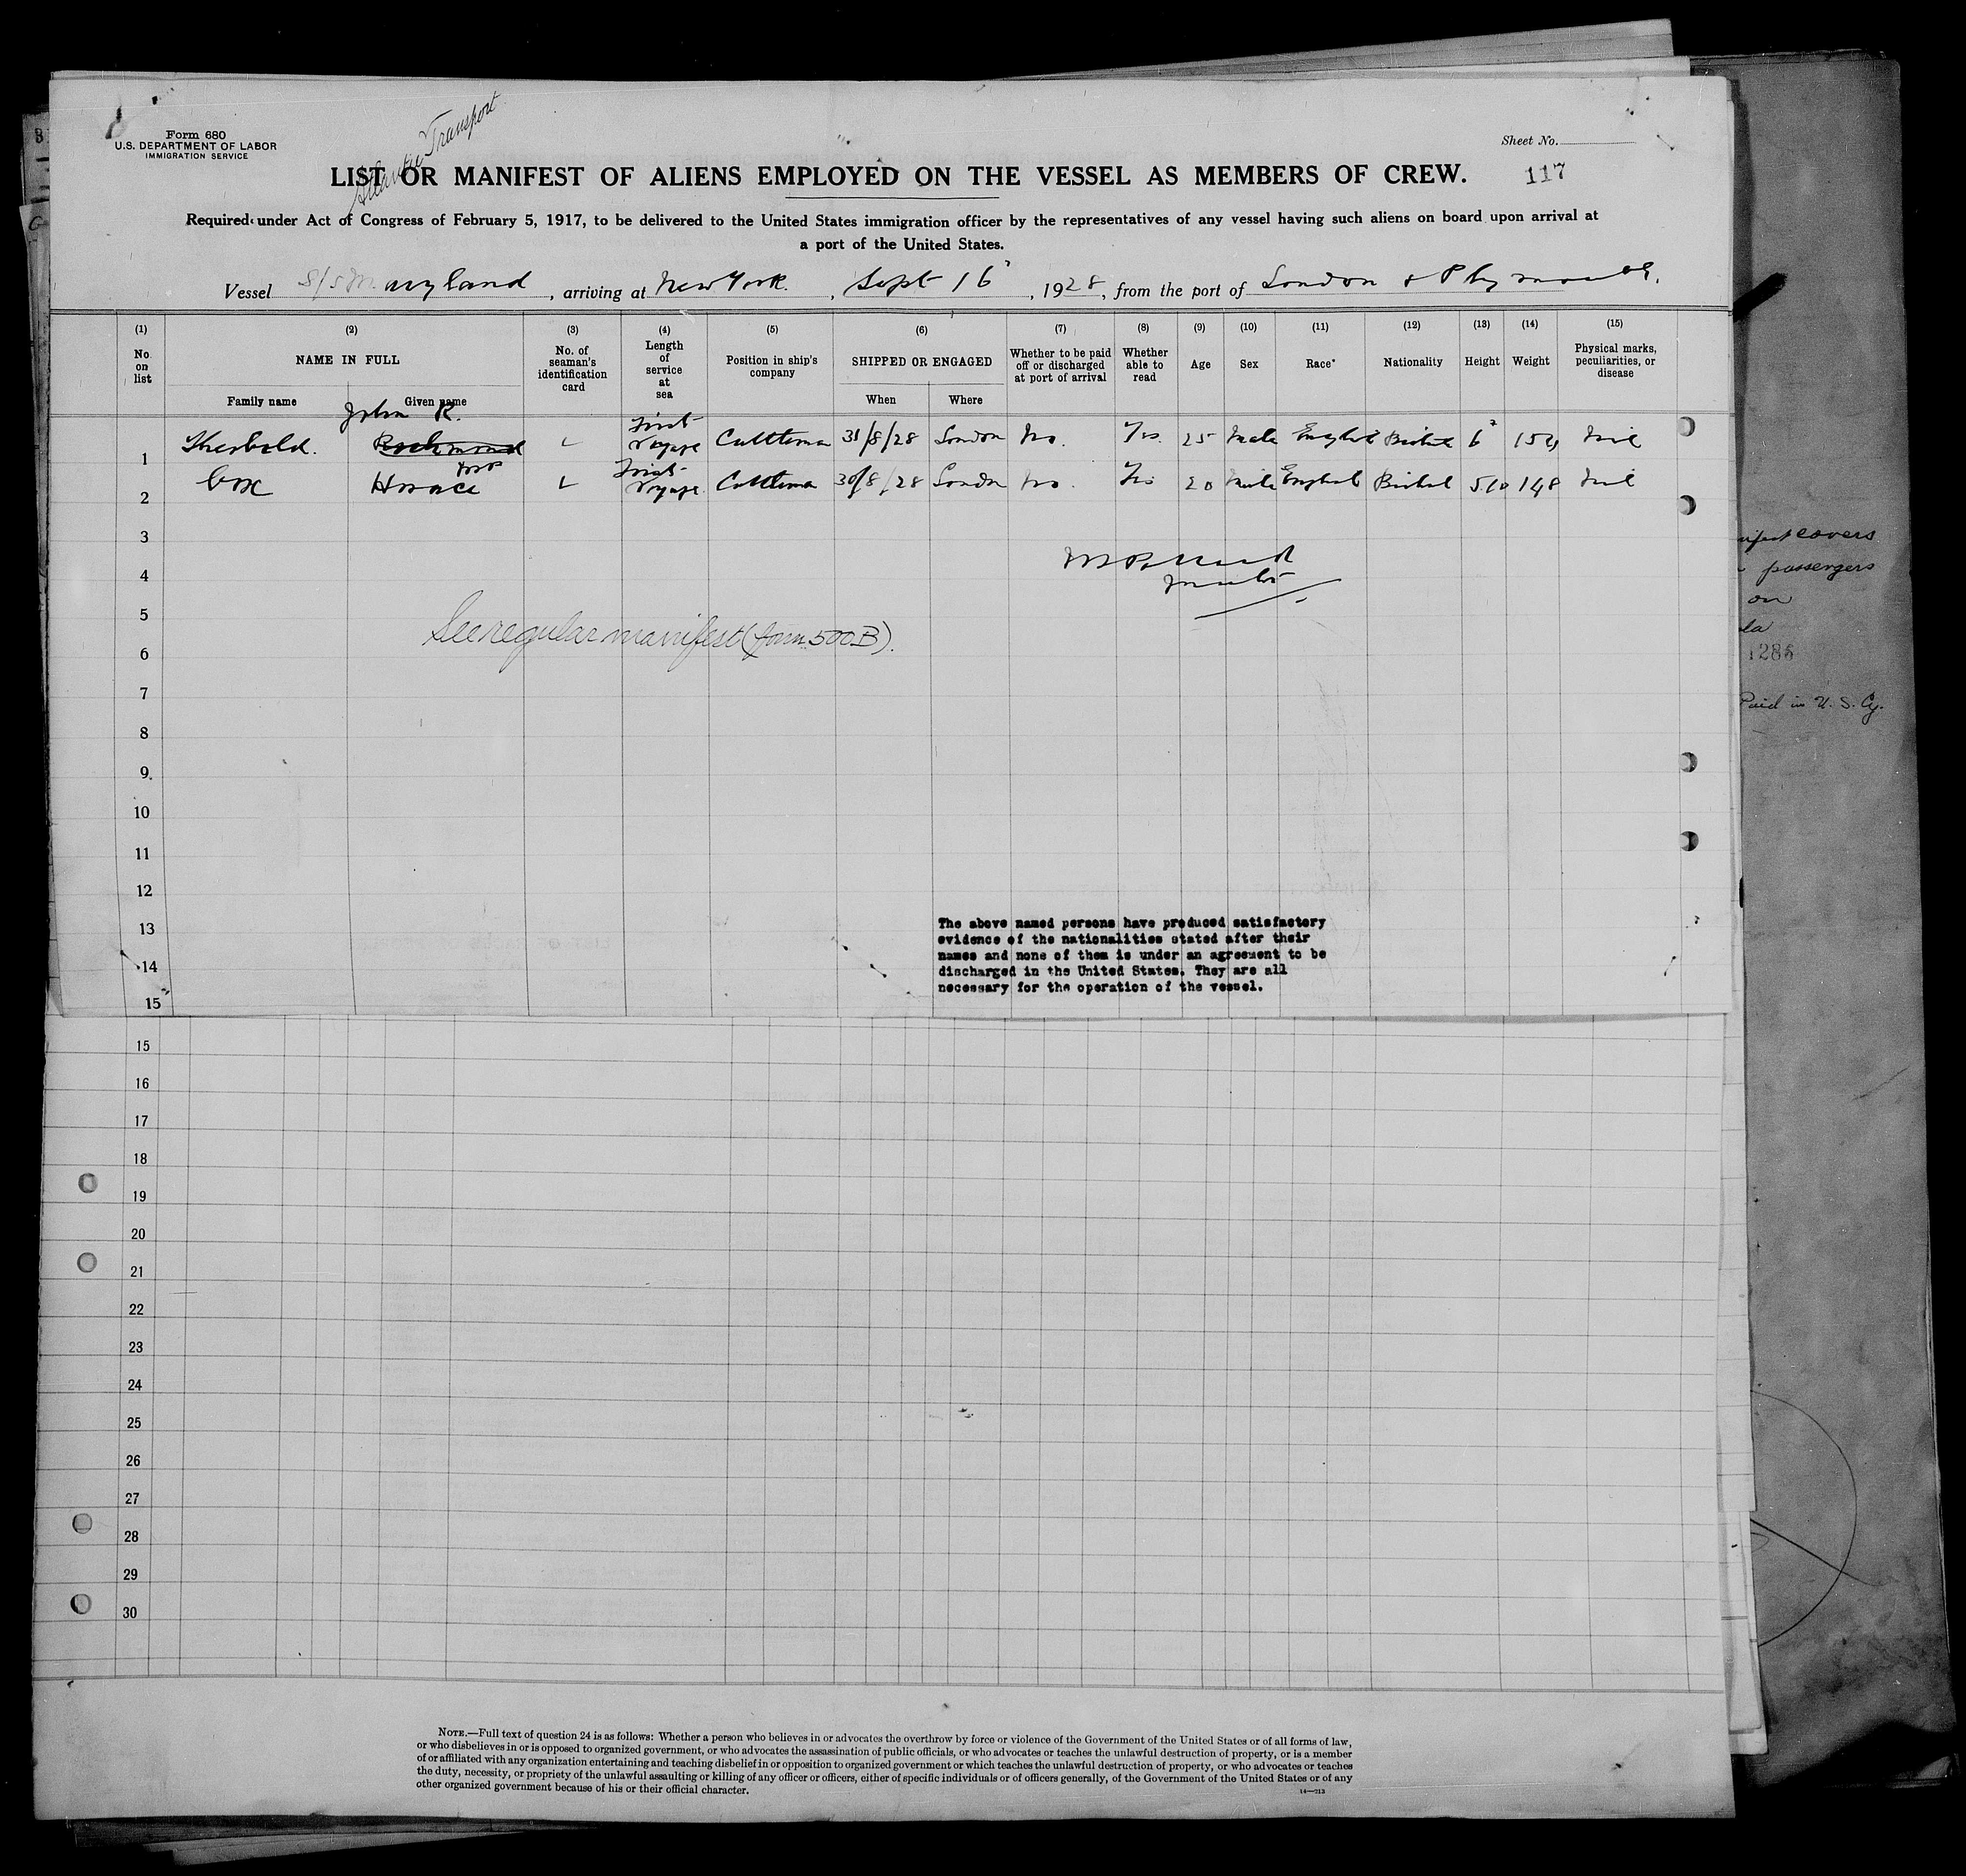 Form 680
U.S. DEPARTMENT OF LABOR
IMMIGRATION SERVICE
Atlantic Transport
Sheet No.
LIST OR MANIFEST OF ALIENS EMPLOYED ON THE VESSEL AS MEMBERS OF CREW.
117
Required under Act of Congress of February 5, 1917, to be delivered to the United States immigration officer by the representatives of any vessel having such aliens on board upon arrival at
a port of the United States.
Vessel S/S Maryland, arriving at New York, Sept 16, 1928, from the port of London & Plymouth.
(1) (2) (3) (4) (5) (6) (7) (8) (9) (10) (11) (12) (13) (14) (15)
No. on list NAME IN FULL No. of seaman's identification card Length of service at sea Position in ship's company SHIPPED OR ENGAGED Whether to be paid off or discharged at port of arrival Whether able to read Age Sex Race* Nationality Height Weight Physical marks, peculiarities, or disease
Family name Given name When Where
John R.
1 Theobald. Richmond First Voyage Cattleman 31/8/28 London No. Yes. 25 Male English British 6 154 Nil
2 Cox Horace First Voyage. Cattleman 30/8/28 London No. Yes 20 Male English British 5.10 148 Nil
3
4
Master
5
See regular manifest (form 500 B).
6
7
8
9
10
11
12
13
14
15
The above named persons have produced satisfactory
evidence of the nationalities stated after their
names and none of them is under an agreement to be
discharged in the United States. They are all
necessary for the operation of the vessel.
15
16
17
18
19
20
21
22
23
24
25
26
27
28
29
30
NOTE.—Full text of question 24 is as follows: Whether a person who believes in or advocates the overthrow by force or violence of the Government of the United States or of all forms of law,
or who disbelieves in or is opposed to organized government, or who advocates the assassination of public officials, or who advocates or teaches the unlawful destruction of property, or is a member
of or affiliated with any organization entertaining and teaching disbelief in or opposition to organized government or which teaches the unlawful destruction of property, or who advocates or teaches
the duty, necessity, or propriety of the unlawful assaulting or killing of any officer or officers, either of specific individuals or of officers generally, of the Government of the United States or of any
other organized government because of his or their official character.
14—213
covers
passengers
on
Paid in U. S. Cy.